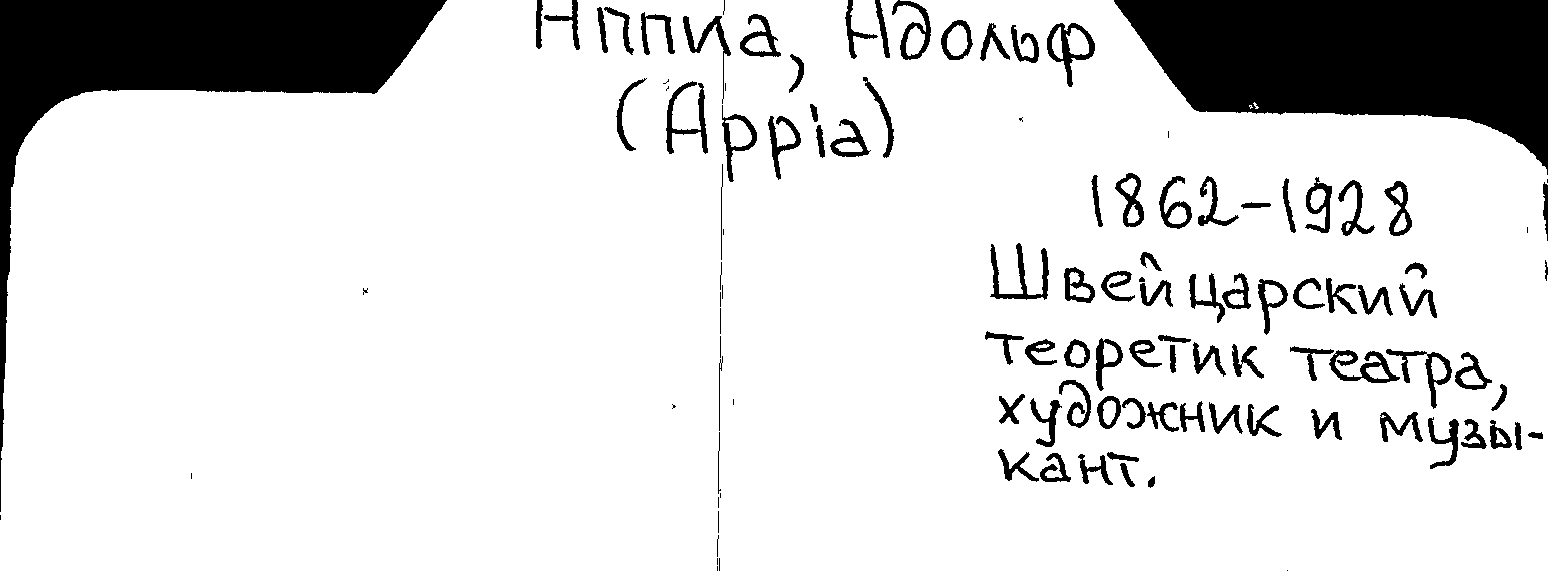 Аппиа, Адольф
(Appia)
1862-1928
Швейцарский
теоретик театра,
художник и музы-
кант.